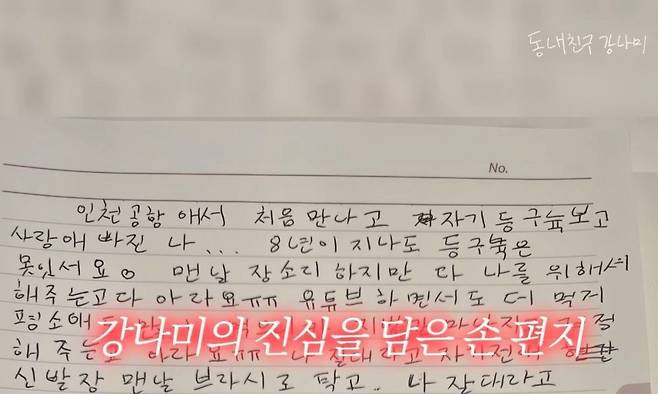 동네친구 강나미
No.
인천공항 애서 처음 만나고 자기 등 구늌보고
사랑애 빠진 나... 8년이 지나도 등구눅은
못잇서요. 맨날 장소리 하지만 다 나를 위해서
해주는고다 아라요ㅠㅠ 유튜브 하면서도 더 먹거
강나미의 진심을 담은 손 편지
해 주는 아라요ㅠㅠ 나 잘대라고
신발장 맨날 브라시로 닥고.. 나 잘대라고